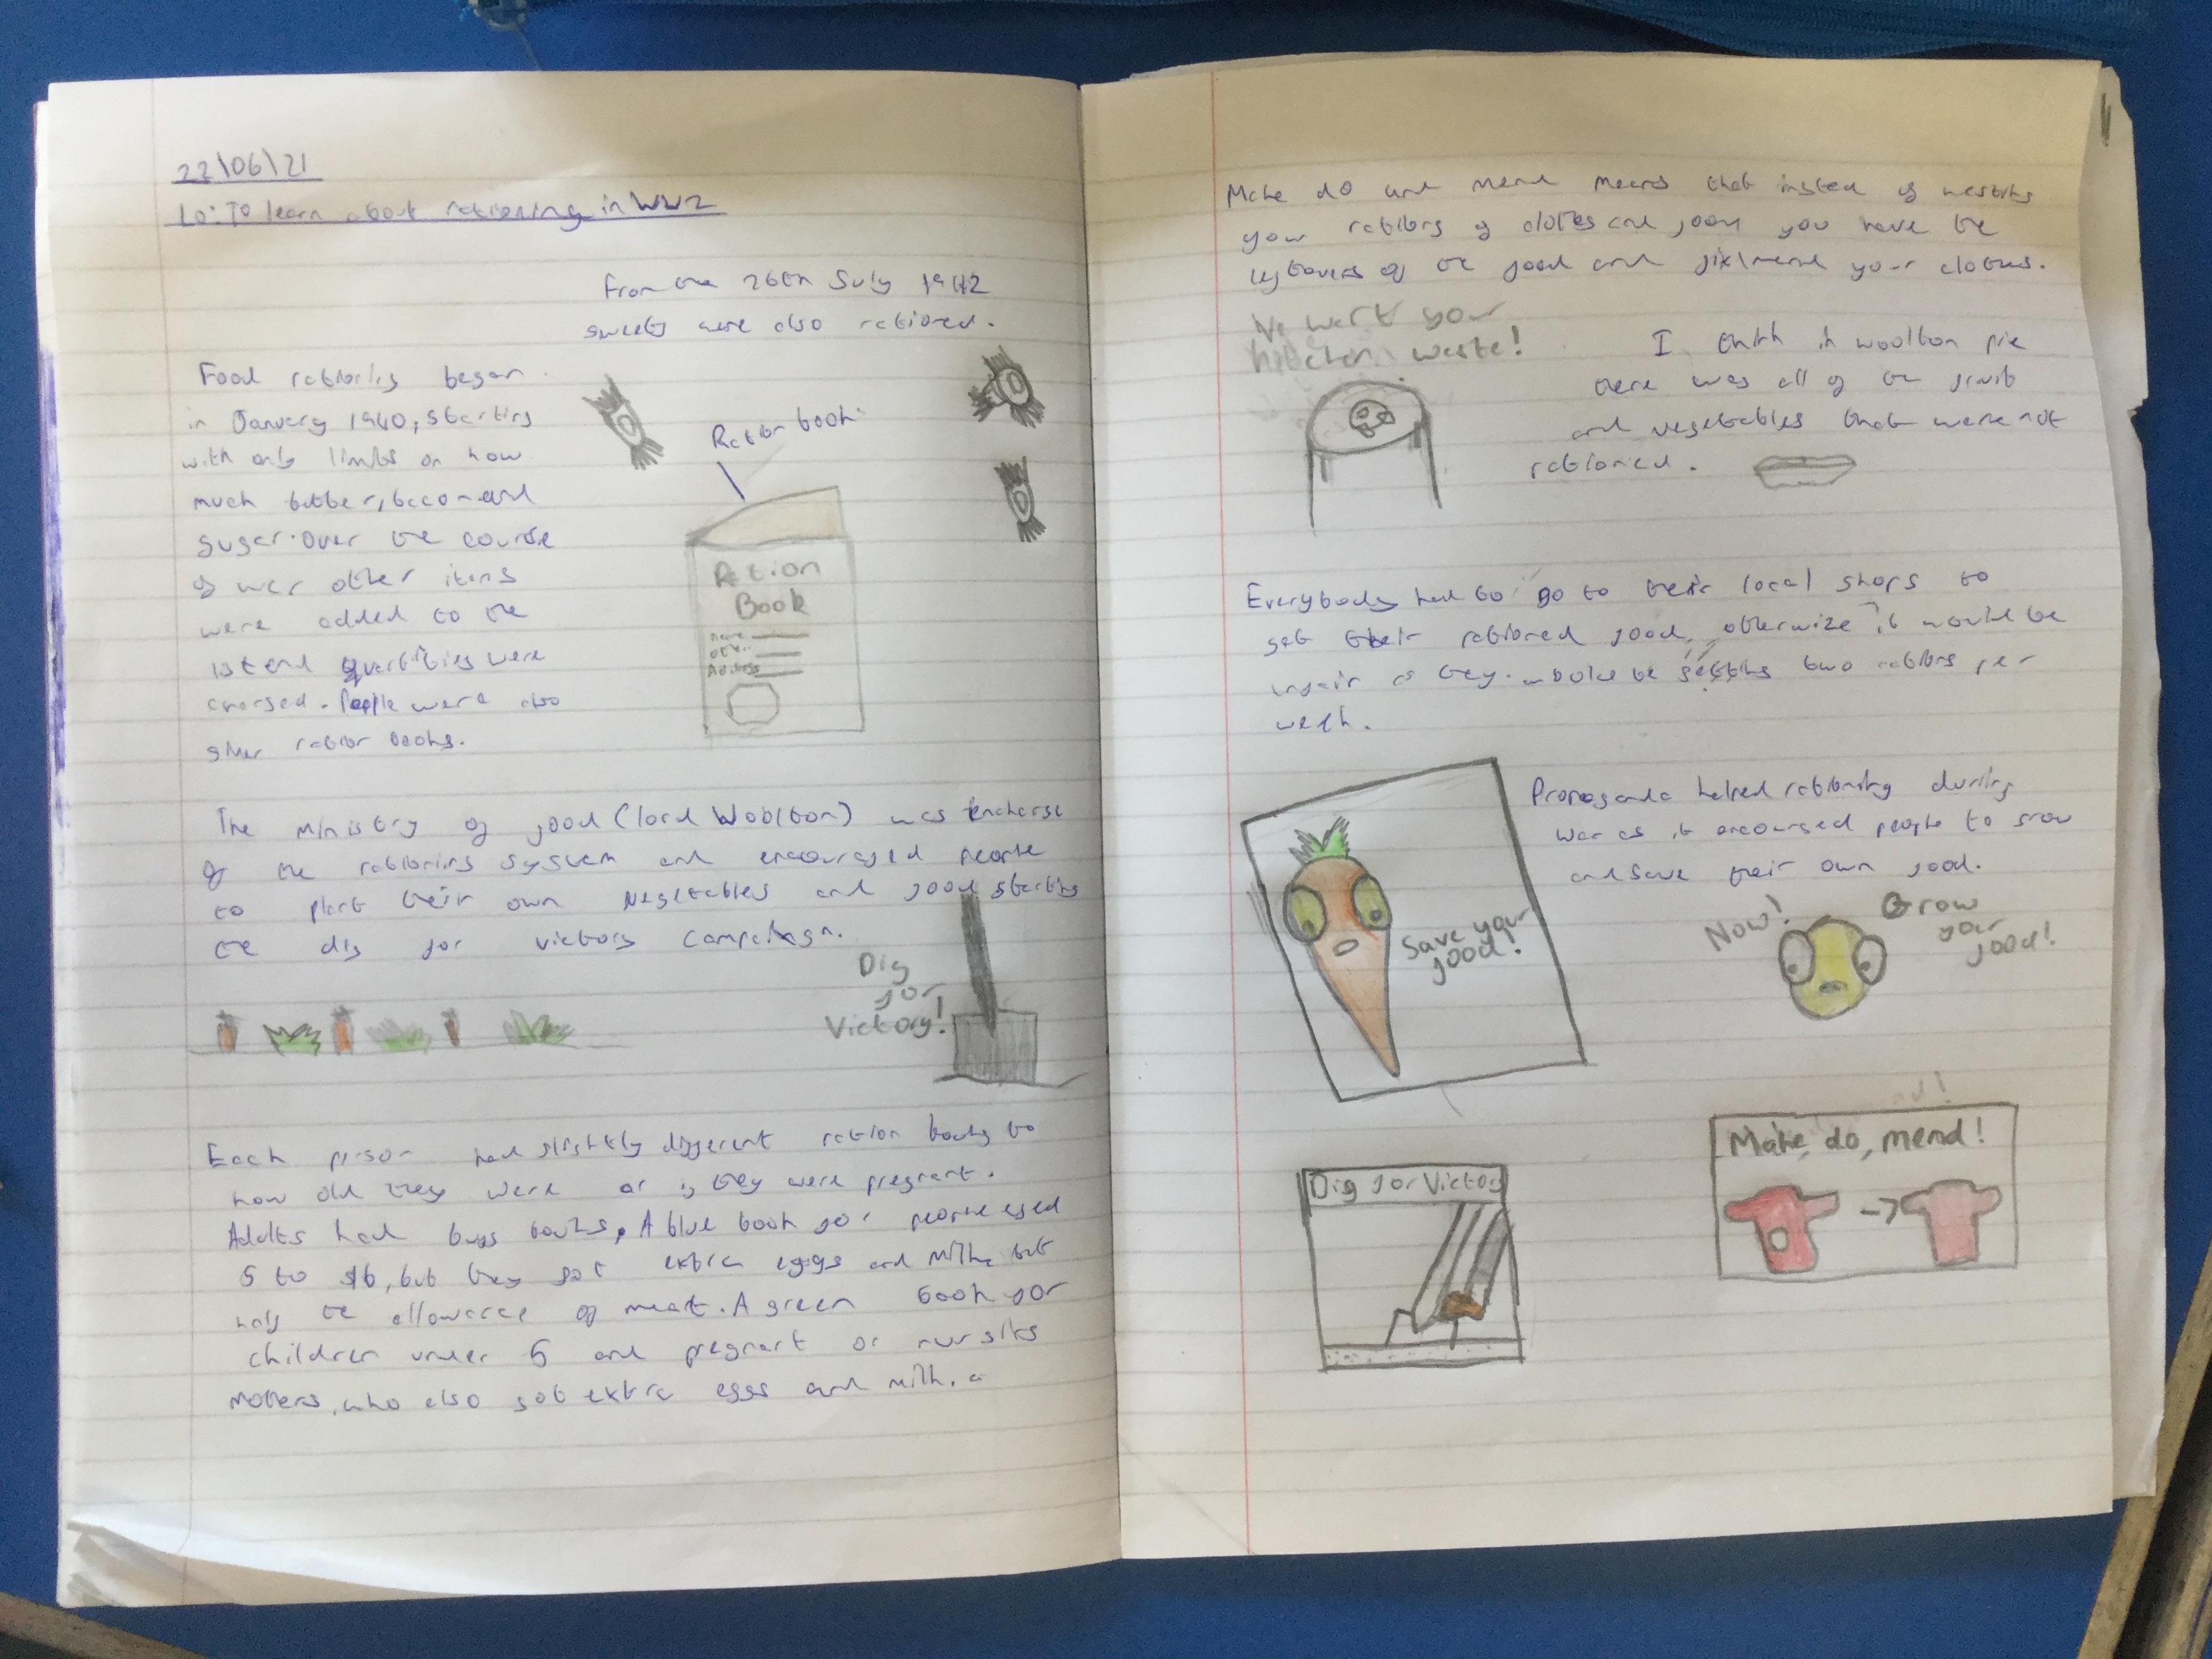 22/06/21
LO: To learn about rationing in WW2
From the 26th July 1942
sweets were also rationed.
Food rationing began
in January 1940, starting
with only limits on how
much butter, bacon and
sugar. Over the course
of war other items
were added to the
list and quantities were
changed. People were also
given ration books.
Ration book
Ration
Book
name
other
Address
The ministry of food (lord Woolton) was incharge
of the rationing system and encouraged people
to plant their own vegetables and food starting
the dig for victory campaign.
Dig
for
Victory!
Each person had slightly different ration books to
how old they were or if they were pregnant.
Adults had buff books. A blue book for people aged
5 to 16, but they got extra eggs and milk but
half the allowance of meat. A green book for
children under 5 and pregnant or nursing
mothers, who also got extra eggs and milk.
Make do and mend means that insted of wasting
your rations of clothes and food you have the
leftovers of the food and fix/mend your clothes.
We want your
kitchen waste!
I think in woolton pie
there was all of the fruit
and vegetables that were not
rationed.
Everybody had to go to their local shops to
get their rationed food, otherwize it would be
unfair as they would be getting two rations per
week.
Propaganda helped rationing during
war as it encouraged people to grow
and save their own food.
Save your
food!
Now!
Grow
your
food!
Dig for Victory
Make, do, mend!